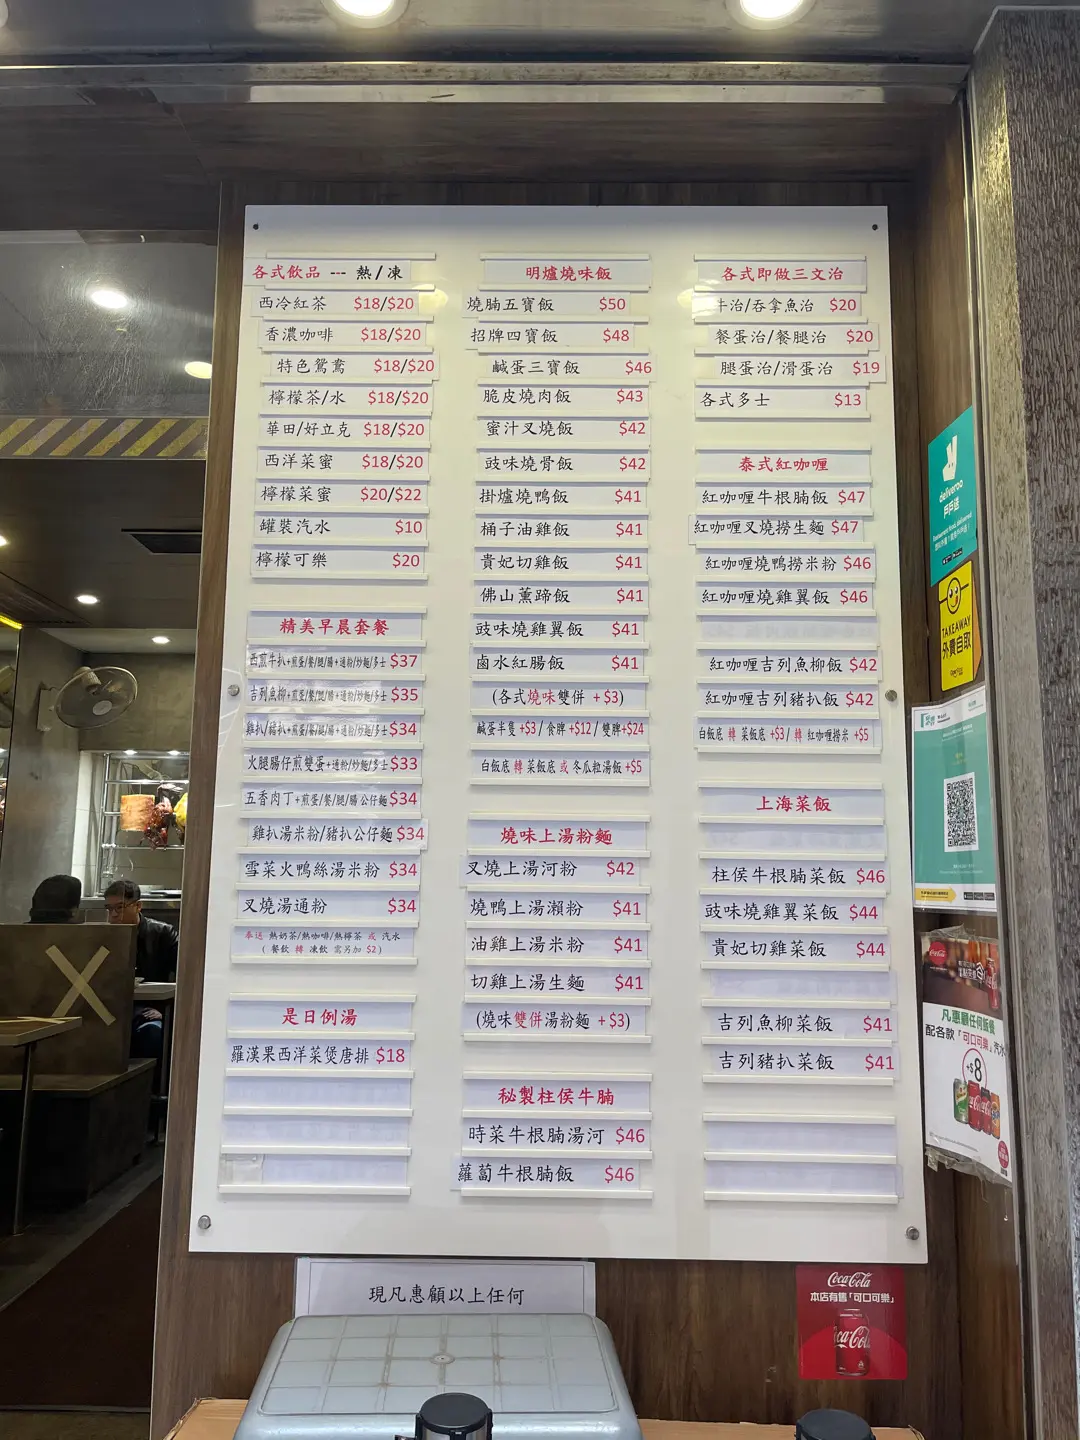 各式飲品 --- 熱/凍
西冷紅茶 $18/$20
香濃咖啡 $18/$20
特色鴛鴦 $18/$20
檸檬茶/水 $18/$20
華田/好立克 $18/$20
西洋菜蜜 $18/$20
檸檬菜蜜 $20/$22
罐裝汽水 $10
檸檬可樂 $20
精美早晨套餐
西煎牛扒+煎蛋/餐/腿/腸+通粉/炒麵/多士 $37
吉列魚柳+煎蛋/餐/腿/腸+通粉/炒麵/多士 $35
雞扒/豬扒+煎蛋/餐/腿/腸+通粉/炒麵/多士 $34
火腿腸仔煎雙蛋+通粉/炒麵/多士 $33
五香肉丁+煎蛋/餐/腿/腸 公仔麵 $34
雞扒湯米粉/豬扒公仔麵 $34
雪菜火鴨絲湯米粉 $34
叉燒湯通粉 $34
奉送 熱奶茶/熱咖啡/熱檸茶 或 汽水
(餐飲 轉 凍飲 需另加 $2)
是日例湯
羅漢果西洋菜煲唐排 $18
明爐燒味飯
燒腩五寶飯 $50
招牌四寶飯 $48
鹹蛋三寶飯 $46
脆皮燒肉飯 $43
蜜汁叉燒飯 $42
豉味燒骨飯 $42
掛爐燒鴨飯 $41
桶子油雞飯 $41
貴妃切雞飯 $41
佛山薰蹄飯 $41
豉味燒雞翼飯 $41
鹵水紅腸飯 $41
(各式燒味雙併 +$3)
鹹蛋半隻 +$3/食髀+$12/雙髀+$24
白飯底 轉 菜飯底 或 冬瓜粒湯飯 +$5
燒味上湯粉麵
叉燒上湯河粉 $42
燒鴨上湯瀨粉 $41
油雞上湯米粉 $41
切雞上湯生麵 $41
(燒味雙併湯粉麵 +$3)
秘製柱侯牛腩
時菜牛根腩湯河 $46
蘿蔔牛根腩飯 $46
各式即做三文治
牛治/吞拿魚治 $20
餐蛋治/餐腿治 $20
腿蛋治/滑蛋治 $19
各式多士 $13
泰式紅咖喱
紅咖喱牛根腩飯 $47
紅咖喱叉燒撈生麵 $47
紅咖喱燒鴨撈米粉 $46
紅咖喱燒雞翼飯 $46
紅咖喱吉列魚柳飯 $42
紅咖喱吉列豬扒飯 $42
白飯底 轉 菜飯底 +$3/ 轉 紅咖喱撈米 +$5
上海菜飯
柱侯牛根腩菜飯 $46
豉味燒雞翼菜飯 $44
貴妃切雞菜飯 $44
吉列魚柳菜飯 $41
吉列豬扒菜飯 $41
現凡惠顧以上任何
deliveroo
戶戶送
TAKEAWAY
外賣自取
Coca-Cola
凡惠顧任何飯餐
配各款「可口可樂」汽水
+$8
Coca-Cola
本店有售「可口可樂」
Coca-Cola
X